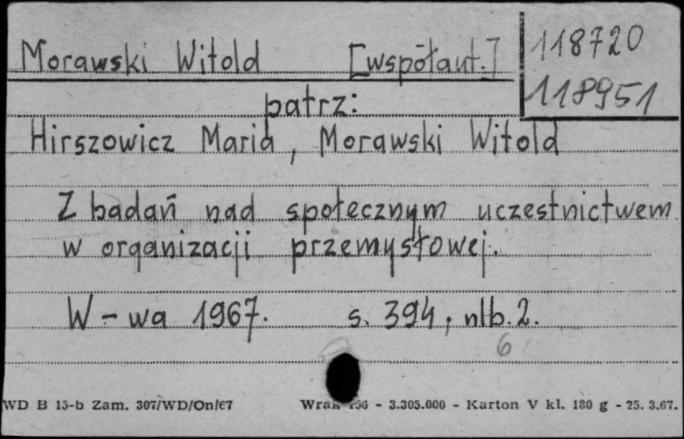 Morawski Witold [współaut.] 118720
118951
patrz:
Hirszowicz Maria, Morawski Witold
Z badań nad społecznym uczestnictwem
w organizacji przemysłowej.
W-wa 1967. s. 394, nlb. 2.
6
WD B 15-b Zam. 307/WD/On/67 - 3.305.000 - Karton V kl. 180 g - 25. 3.67.